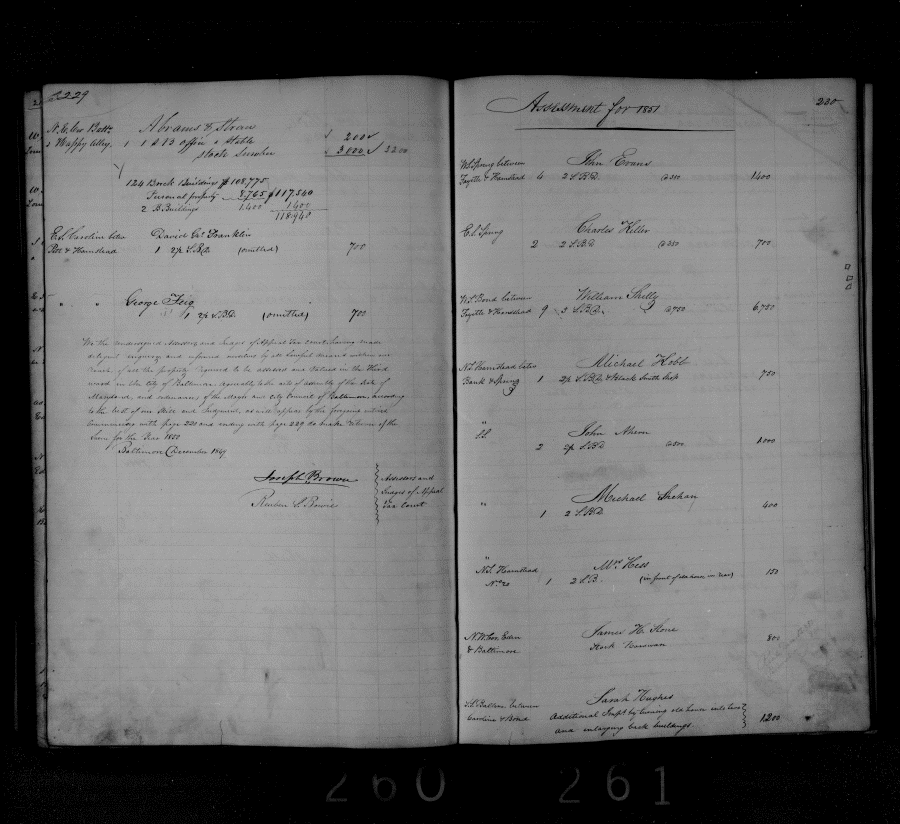 229
N.E. Cor Balto. Abrams & Straw
& Happy Alley. 1 1 S B Office & Stable 200
Stock Lumber 3,000 2200
124 Brick Buildings $108,775
Personal property 8,765 $117,540
2 B. Buildings 1,400 1400
118,940
E.S. Caroline betw David Franklin
& Hamstead 1 2½ S.B.D. (omitted) 700
" " George Feig
1 2½ S.B.D. (omitted) 700
We the undersigned Assessors and Judges of Appeal Tax court having made
diligent enquiry and informed ourselves by all lawful means within our
reach of all the property required to be assessed and valued in the Third
ward in the City of Baltimore agreeably to the acts of assembly of the State of
Maryland, and ordinances of the Mayor and City Council of Baltimore, according
to the best of our Skill and Judgment, as will appear by the foregoing
Commencing with page 220 and ending with page 229 do make return of the
Same for the Year 1850
Baltimore December 1849
Joseph Brown Assessors and
Reuben S. Bowie Judges of Appeal
Tax Court
Assessment for 1851 230
W.S. Spring between John Evans
Fayette & Hamstead 4 2 S.B.D. @ 350 1400
E.S. Spring Charles Keller
2 2 S.B.D. @ 350 700
W.S. Bond between William Skelly
Fayette & Hamstead 9 2 S.B.D. @ 750 6,750
N.S. Hamstead betw Michael Kobb
Bank & Spring 1 2½ S.B.D. & Black Smith Shop 750
" John
S.S. 2 2½ S.B.D. @ 500 1,000
" Michael
1 2 S.B.D. 400
" Mrs Hess
N.S. Hamstead
No 20 1 2 S.B. (in front of old house in rear) 150
N.W. Cor. Eden James H. Stone
& Baltimore Stock 800
S.S. Balto. between Sarah Hughes
Caroline & Bond Additional Impt by turning old house into
and enlarging back buildings 1200
260 261